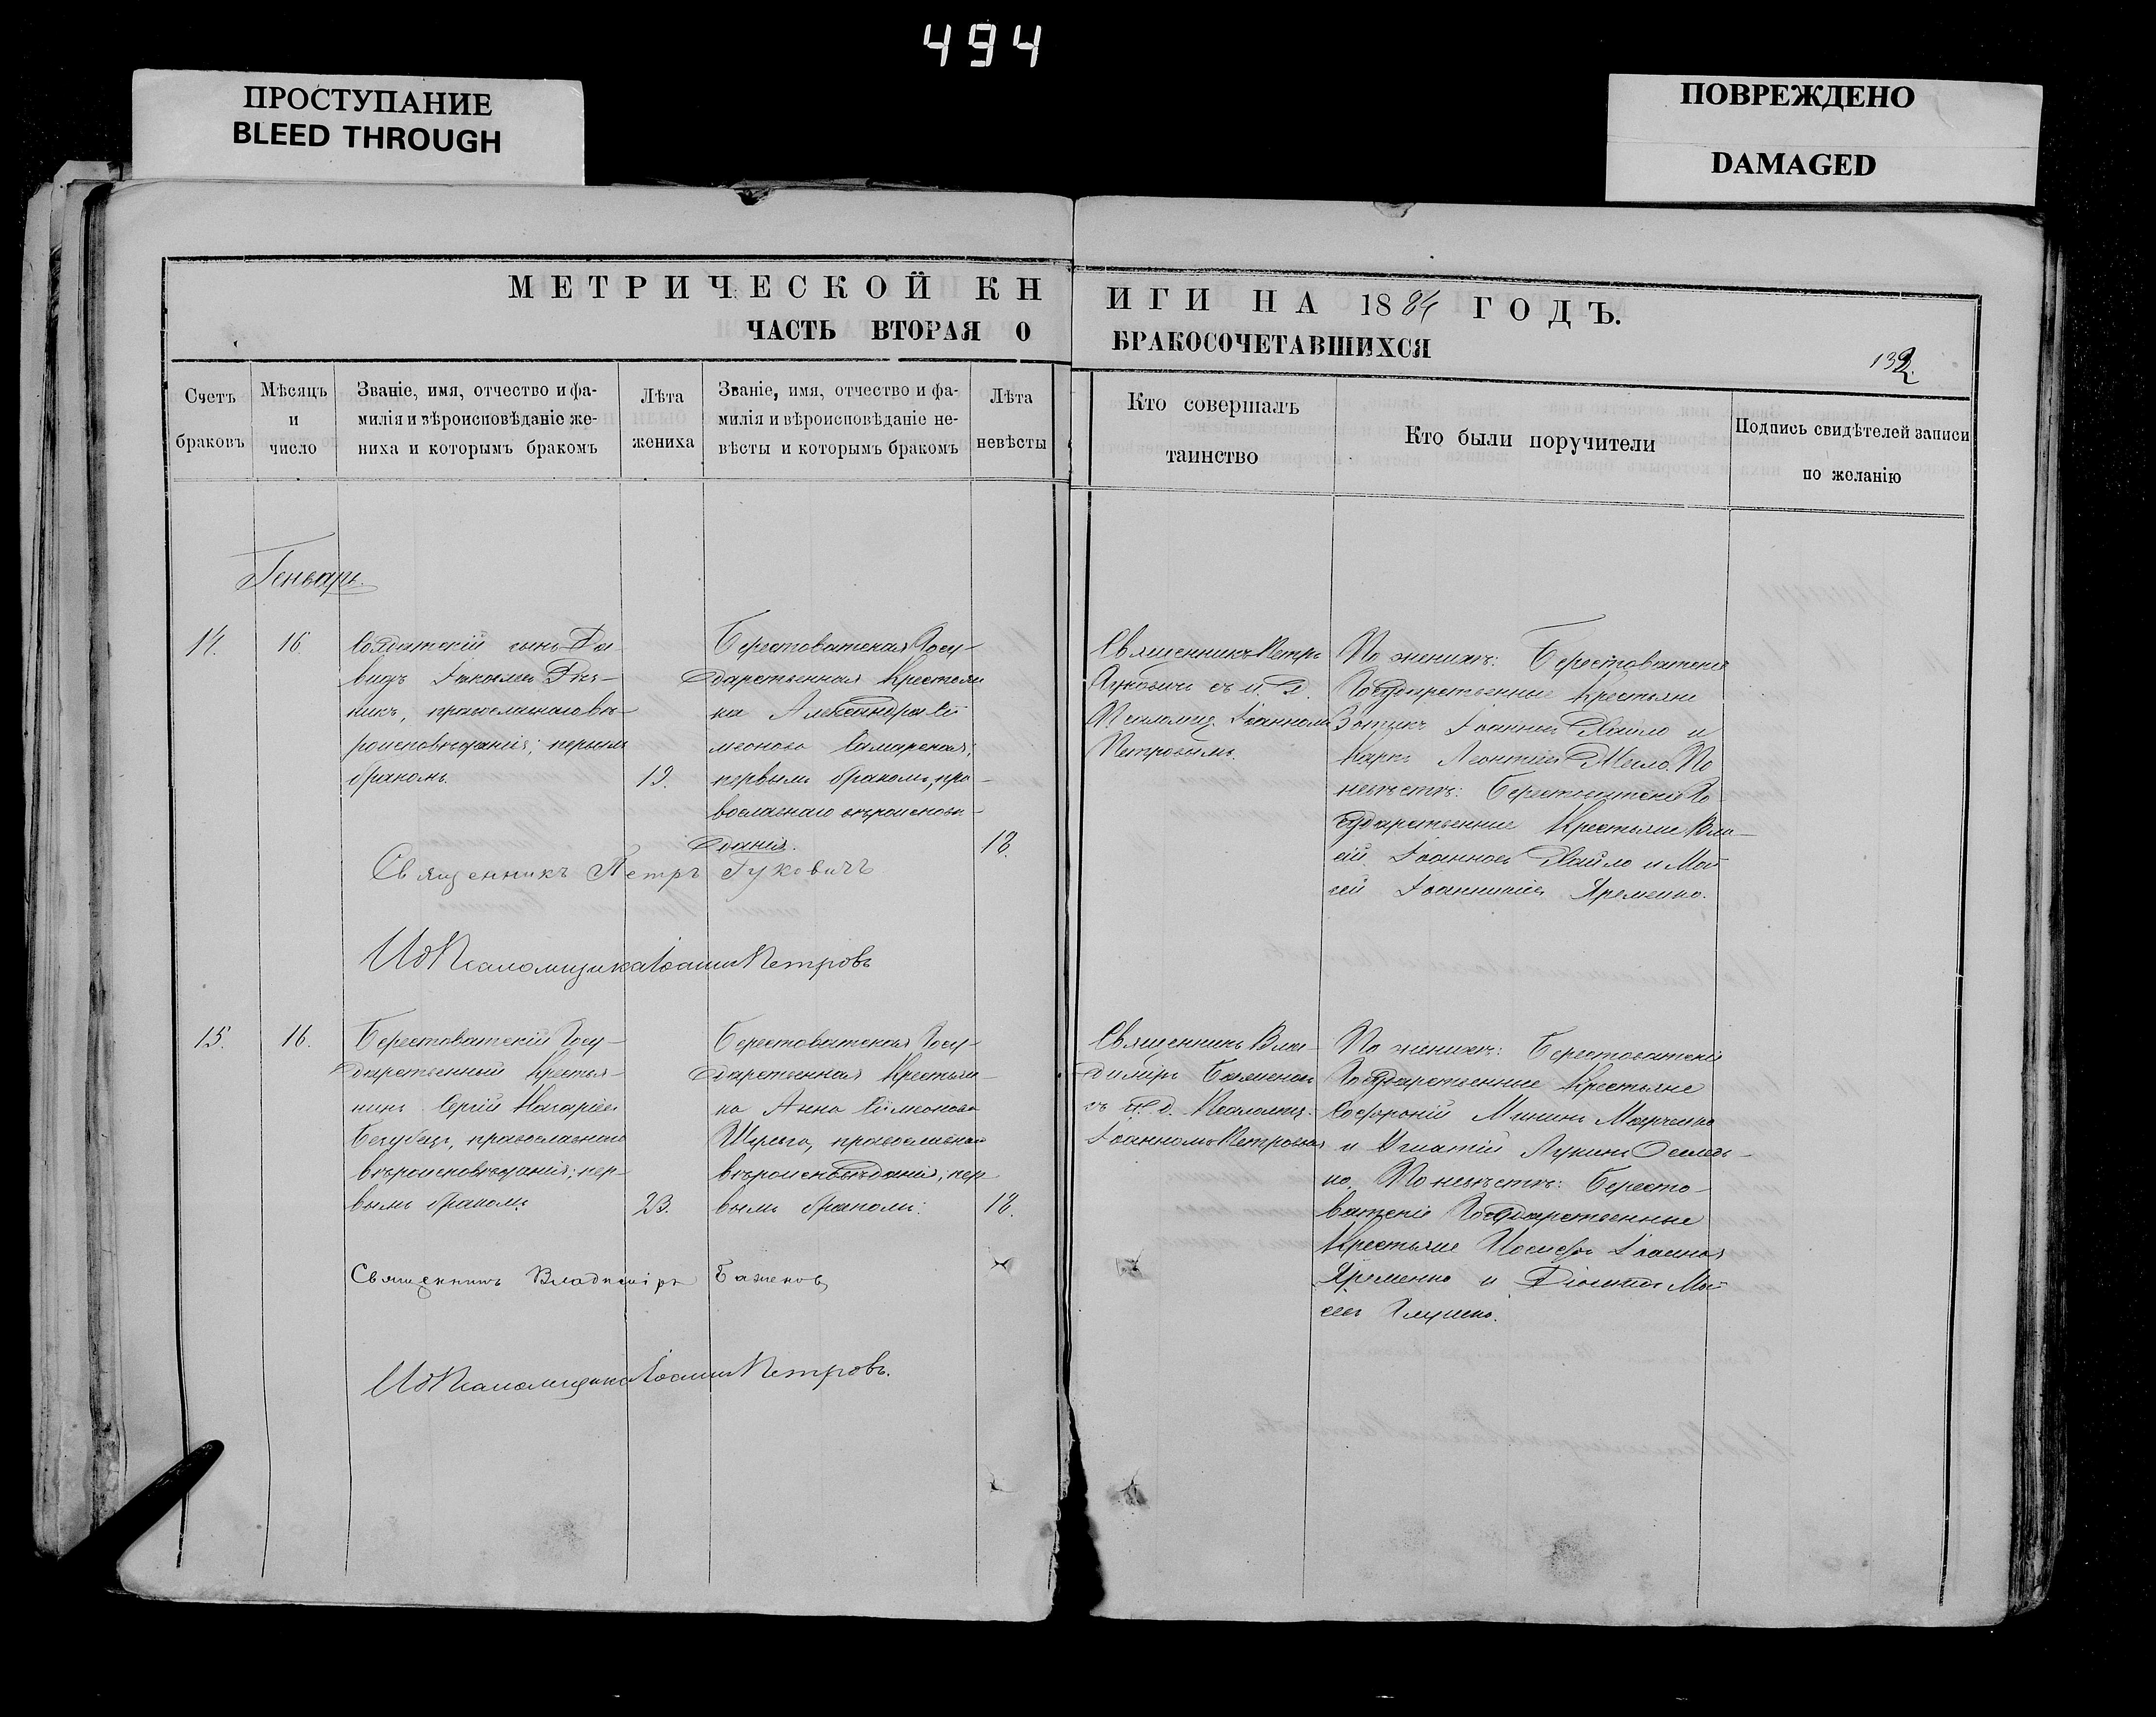 494
ПРОСТУПАНИЕ
BLEED THROUGH
ПОВРЕЖДЕНО
DAMAGED
МЕТРИЧЕСКОЙ КНИГИ НА 1884 ГОДЪ.
ЧАСТЬ ВТОРАЯ О БРАКОСОЧЕТАВШИХСЯ
132.
Счетъ браковъ
Мѣсяцъ и число
Званіе, имя, отчество и фа-
милія и вѣроисповѣданіе же-
ниха и которымъ бракомъ
Лѣта
жениха
Званіе, имя, отчество и фа-
милія и вѣроисповѣданіе не-
вѣсты и которымъ бракомъ
Лѣта
невѣсты
Кто совершалъ
таинство
Кто были поручители
Подпись свидѣтелей записи
по желанію
Генварь.
14.
16
Солдатскій сынъ Да-
видъ
православнаго вѣ-
роисповѣданія; первымъ
бракомъ.
19.
Берестоватская Госу-
дарственная Крестьян
ка Александра Си
меонова Самарская;
первымъ бракомъ, пра-
вославнаго вѣроисповѣ-
данія.
18.
Священникъ Петръ
съ и. д.
Псаломщ. Іоанномъ
Петровымъ.
По женихѣ: Берестоватскіе
Государственные Крестьяне
Іоанновъ и
Карпъ Леонтіевъ По
невѣстѣ: Берестоватскіе Го-
сударственные Крестьяне
Іоанновъ и Мои
сей Яременко.
Священникъ Петръ Гуковичъ
Ид Псаломщика Іоаннъ Петровъ
15.
16.
Берестоватскій Госу-
дарственный Крестья-
нинъ Сергій Макаріевъ
православнаго
вѣроисповѣданія; пер-
вымъ бракомъ.
23.
Берестоватская Госу-
дарственная Крестьян-
ка Анна Симеонова
Шульга, православнаго
вѣроисповѣданія; пер
вымъ бракомъ.
18.
Священникъ Вла-
диміръ Баженовъ
съ и. д. Псаломщ.
Іоанномъ Петровымъ
По женихѣ: Берестоватскіе
Государственные Крестьяне
Софроній Мининъ Марченко
и Игнатій Лукинъ
По невѣстѣ: Бересто-
ватскіе Государственные
Крестьяне Іосифъ Іоанновъ
Яременко и Мои
сеевъ
Священникъ Владиміръ Баженовъ
Ид Псаломщика Іоаннъ Петровъ.